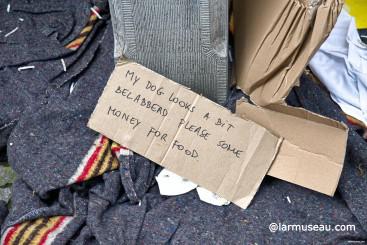 MY DOG LOOKS A BIT
BELABBERD PLEASE SOME
MONEY FOR FOOD
@larmuseau.com